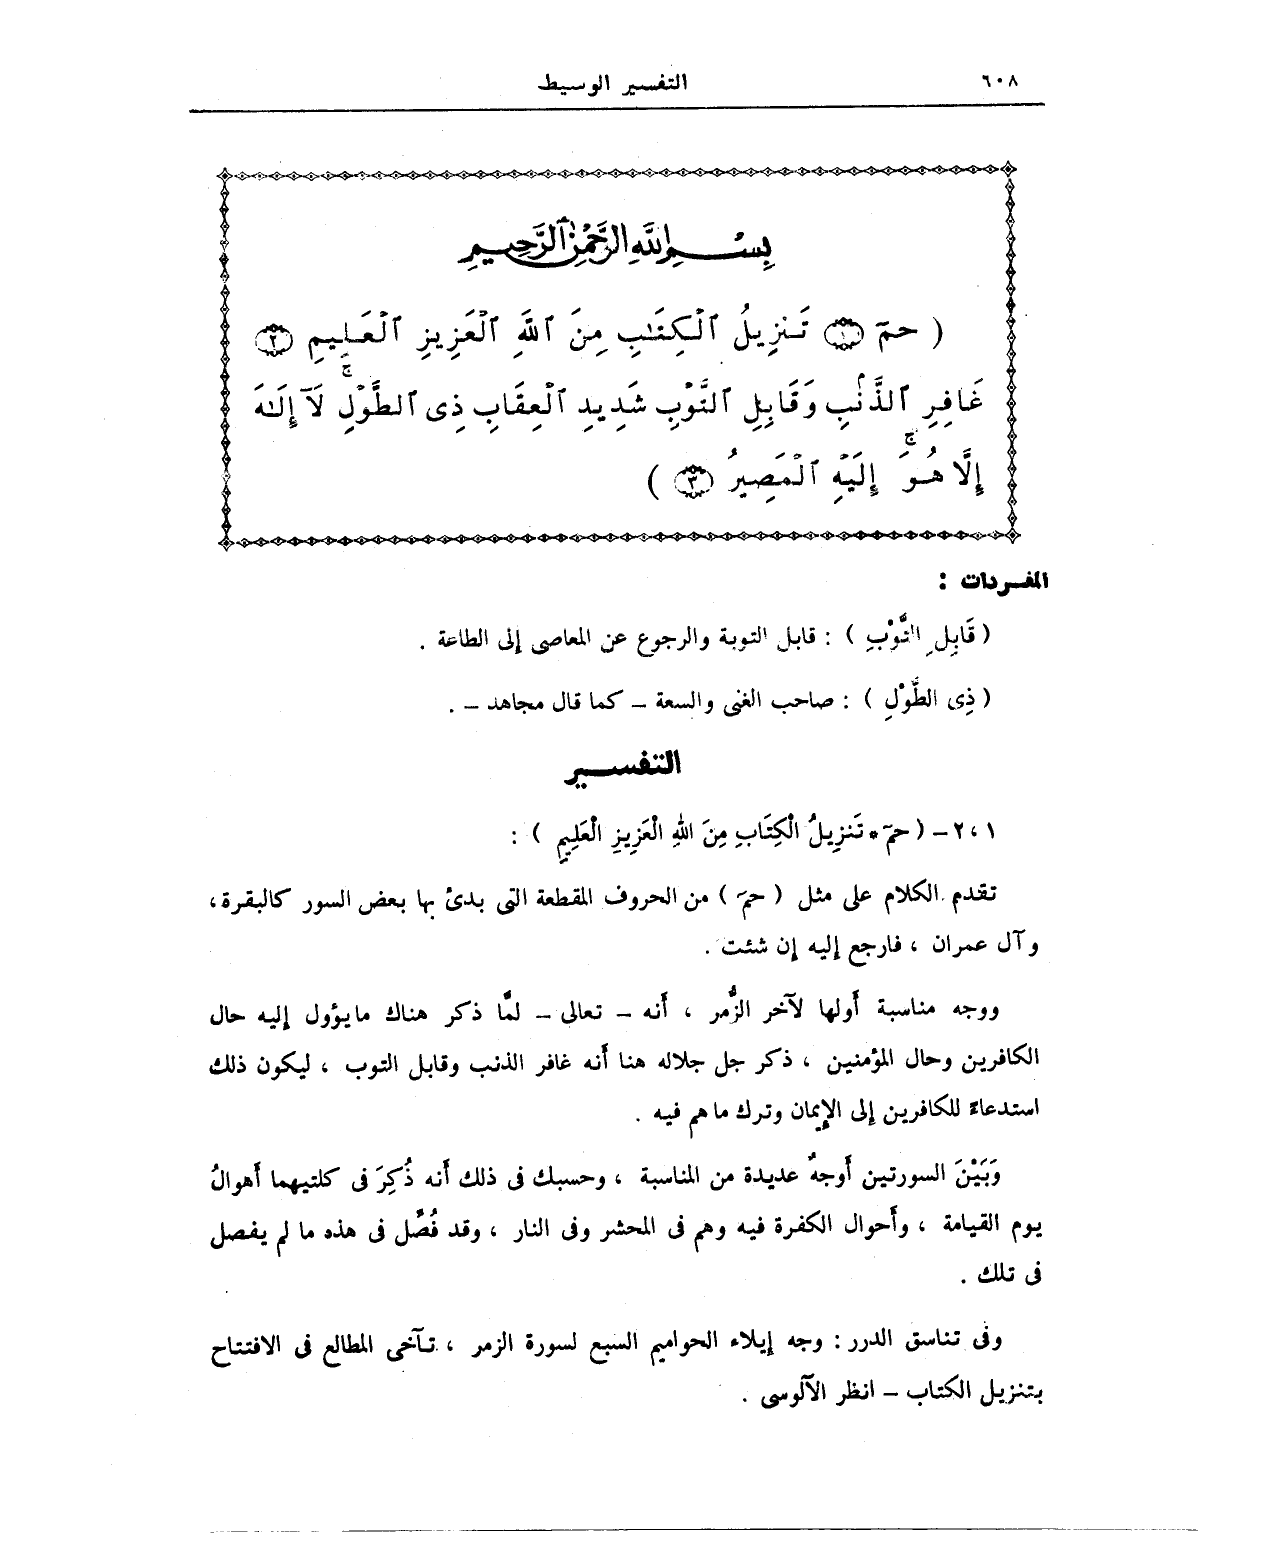 ٦٠٨ التفسير الوسيط
بِسْمِ اللَّهِ الرَّحْمَٰنِ الرَّحِيمِ
( حمٓ ﴿١﴾ تَنزِيلُ ٱلْكِتَٰبِ مِنَ ٱللَّهِ ٱلْعَزِيزِ ٱلْعَلِيمِ ﴿٢﴾
غَافِرِ ٱلذَّنۢبِ وَقَابِلِ ٱلتَّوْبِ شَدِيدِ ٱلْعِقَابِ ذِى ٱلطَّوْلِ ۖ لَآ إِلَٰهَ
إِلَّا هُوَ ۖ إِلَيْهِ ٱلْمَصِيرُ ﴿٣﴾ )
المفـردات :
( قَابِلِ التَّوْبِ ) : قابل التوبة والرجوع عن المعاصى إلى الطاعة .
( ذِى الطَّوْلِ ) : صاحب الغنى والسعة – كما قال مجاهد – .
التفسـير
١ ، ٢ – ( حمٓ * تَنزِيلُ الْكِتَابِ مِنَ اللهِ الْعَزِيزِ الْعَلِيمِ ) :
تقدم الكلام على مثل ( حمٓ ) من الحروف المقطعة التى بدئ بها بعض السور كالبقرة ،
وآل عمران ، فارجع إليه إن شئت .
ووجه مناسبة أولها لآخر الزُّمر ، أَنه – تعالى – لمَّا ذكر هناك ما يؤول إليه حال
الكافرين وحال المؤمنين ، ذكر جل جلاله هنا أَنه غافر الذنب وقابل التوب ، ليكون ذلك
استدعاءً للكافرين إلى الإِيمان وترك ما هم فيه .
وَبَيْنَ السورتين أَوجهٌ عديدة من المناسبة ، وحسبك فى ذلك أَنه ذُكِرَ فى كلتيهما أَهوالُ
يوم القيامة ، وأَحوال الكفرة فيه وهم فى المحشر وفى النار ، وقد فُصِّل فى هذه ما لم يفصل
فى تلك .
وفى تناسق الدرر : وجه إيلاء الحواميم السبع لسورة الزمر ، تآخى المطالع فى الافتتاح
بتنزيل الكتاب – انظر الآلوسى .